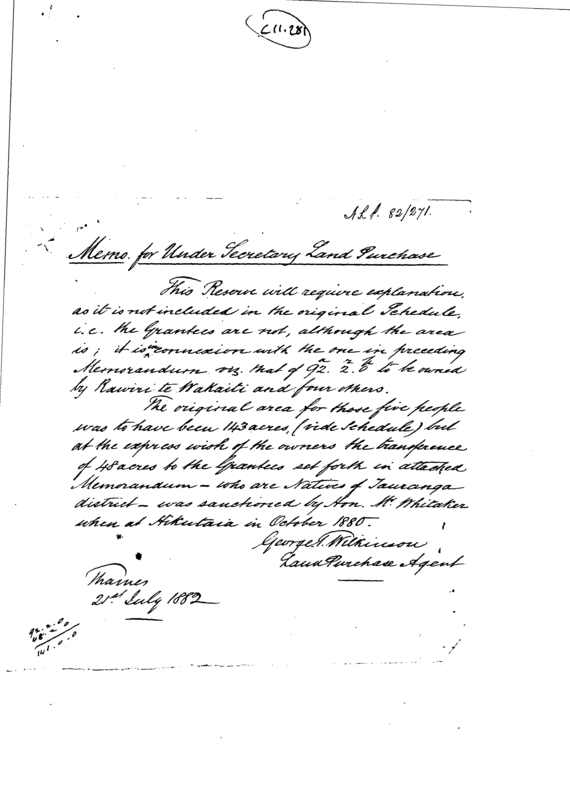 C11.281
N.L.P. 82/271.
Memo. for Under Secretary Land Purchase
This Reserve will require explanation,
as it is not included in the original Schedule,
i.e. the Grantees are not, although the area
is; it is in connexion with the one in preceding
Memorandum viz. that of 92a. 2r. 0p to be owned
by Rawiri te Wakaiti and four others.
The original area for those five people
was to have been 143 acres, (vide Schedule) but
at the express wish of the owners the transference
of 48 acres to the Grantees set forth in attached
Memorandum – who are Natives of Tauranga
district – was sanctioned by Hon. Mr. Whitaker
when at Hikutaia in October 1880.
George T. Wilkinson
Land Purchase Agent
Thames
21st July 1882
92.2.0
48.2.0
141.0.0